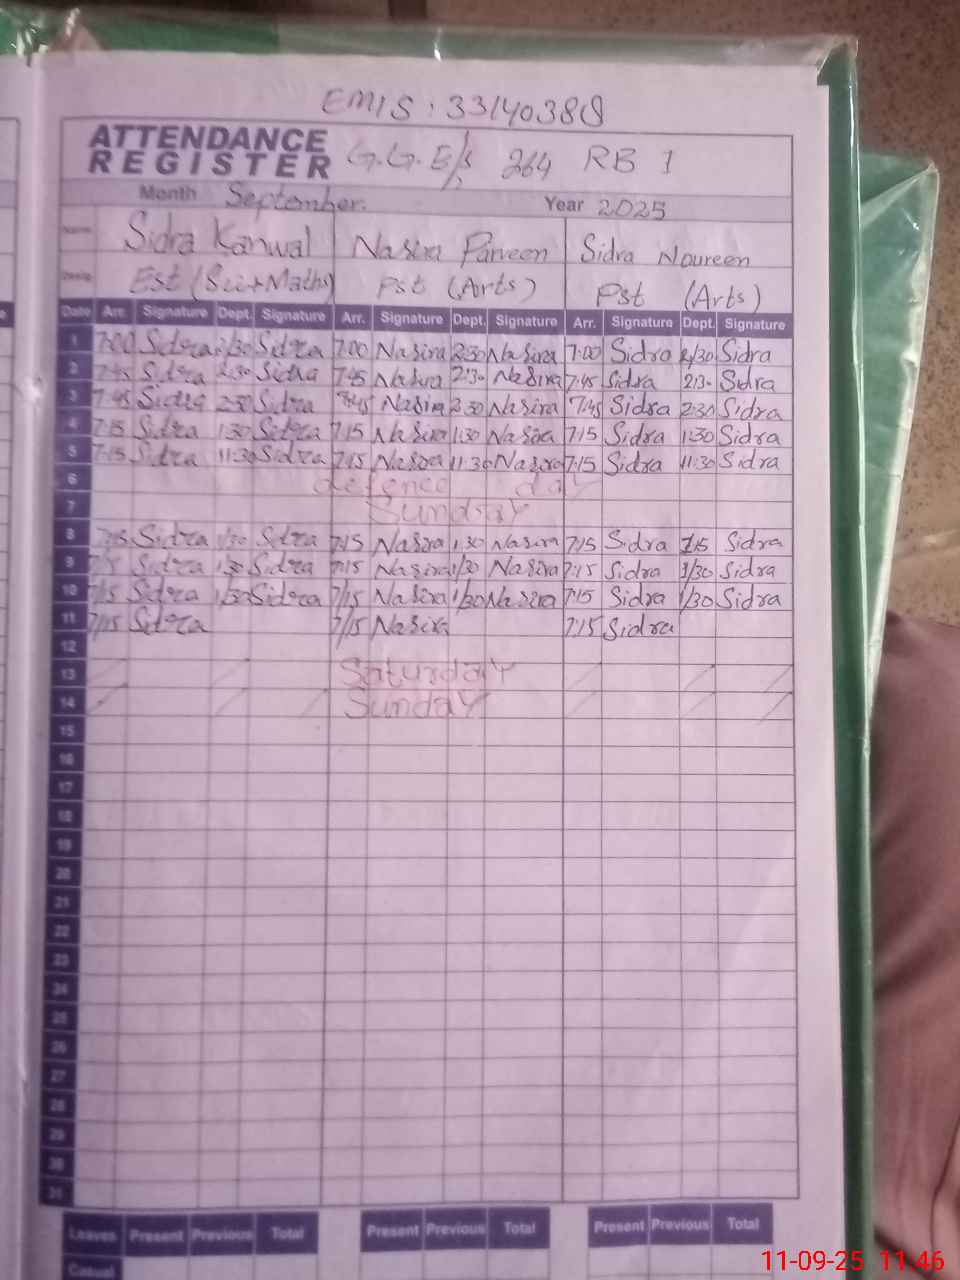 EMIS : 33140388
ATTENDANCE
REGISTER G.G.E/S 264 RB 1
Month September. Year 2025
Name Sidra Kanwal Nasira Parveen Sidra Noureen
Est (Sci+Maths) Pst (Arts) Pst (Arts)
Date Arr. Signature Dept. Signature Arr. Signature Dept. Signature Arr. Signature Dept. Signature
1 7:00 Sidra 2/30 Sidra 7:00 Nasira 2:30 Nasira 7:00 Sidra 2/30 Sidra
2 7:45 Sidra 2:30 Sidra 7:45 Nasira 2:30 Nasira 7:45 Sidra 2:30 Sidra
3 7:45 Sidra 2:30 Sidra 7:45 Nasira 2:30 Nasira 7:45 Sidra 2:30 Sidra
4 7:15 Sidra 1:30 Sidra 7:15 Nasira 1:30 Nasira 7:15 Sidra 1:30 Sidra
5 7:15 Sidra 11:30 Sidra 7:15 Nasira 11:30 Nasira 7:15 Sidra 11:30 Sidra
6 defence day
7 Sunday
8 7:15 Sidra 1/30 Sidra 7:15 Nasira 1:30 Nasira 7:15 Sidra 7:15 Sidra
9 7/15 Sidra 1:30 Sidra 7:15 Nasira 1/30 Nasira 7:15 Sidra 1/30 Sidra
10 7/15 Sidra 1/30 Sidra 7/15 Nasira 1/30 Nasira 7:15 Sidra 1/30 Sidra
11 7/15 Sidra 7/15 Nasira 7:15 Sidra
12
13 Saturday
14 Sunday
15
16
17
18
19
20
21
22
23
24
25
26
27
28
29
30
31
Leaves Present Previous Total Present Previous Total Present Previous Total
Casual
11-09-25 11:46